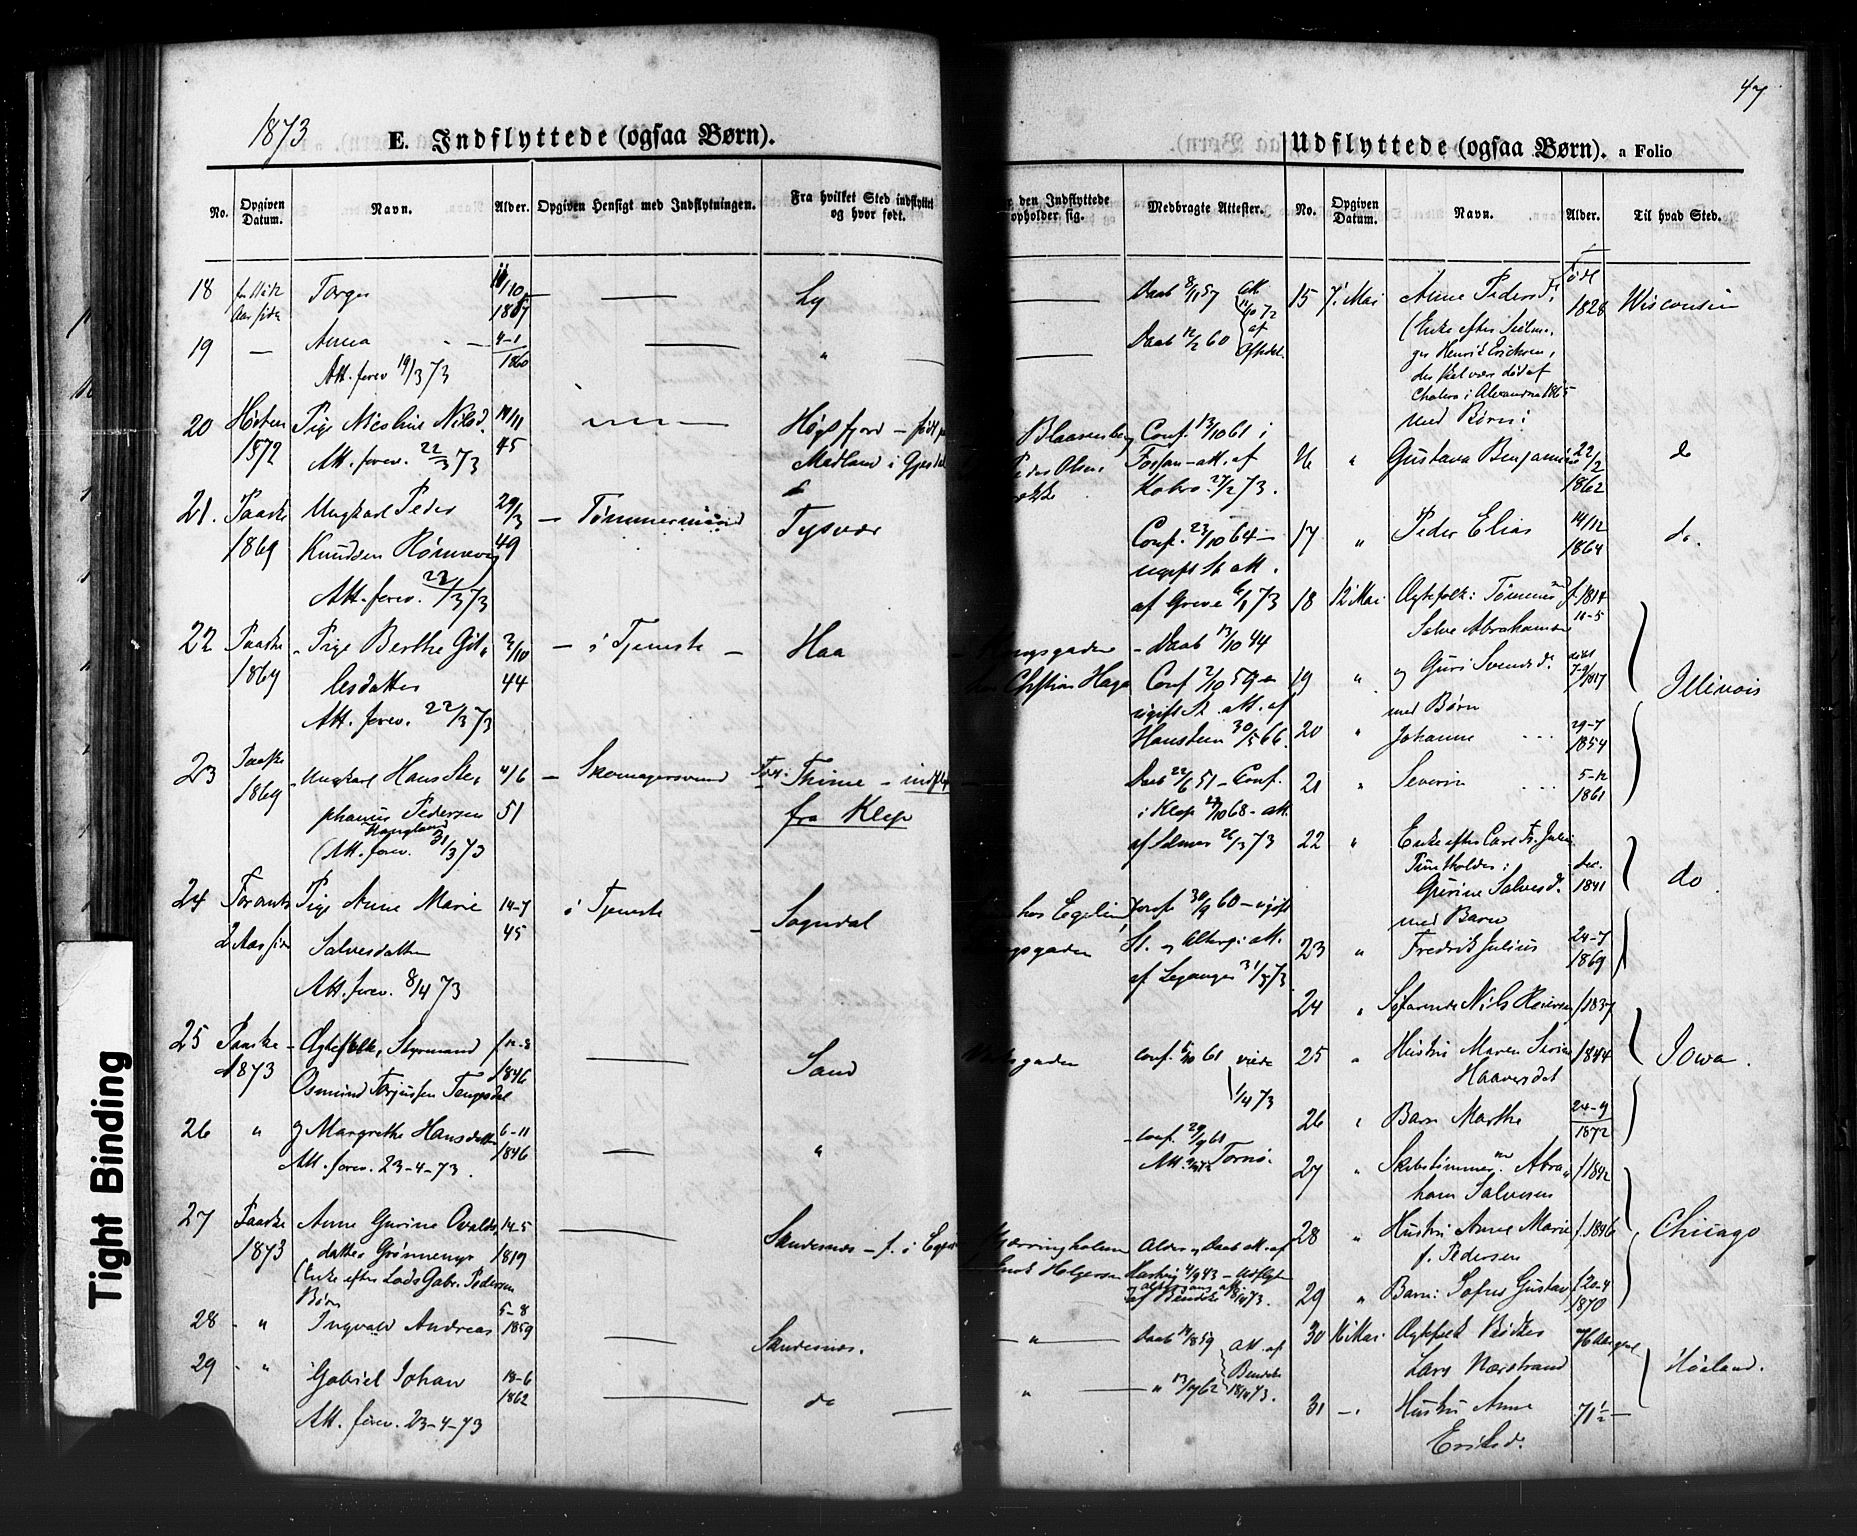 47
1873
E. Indflyttede (ogsaa Børn).
Udflyttede (ogsaa Børn). a Folio
No.
Opgiven Datum.
Navn.
Alder.
Opgiven Hensigt med Indflytningen.
Fra hvilket Sted indflyttet og hvor født.
den Indflyttede opholder sig.
Medbragte Attester.
No.
Opgiven Datum.
Navn.
Alder.
Til hvad Sted.
18 Torger 11/10 1857 — Ly
19 — Anna 4-1 1860 — "
Att. forev. 19/3 73
20 Høsten Pige Nicoline Nilsd. 11/11 Høgsfjord - født paa
1872 Att. forev. 22/3 73 45 Madland i Gjesdal
21. Paaske Ungkarl Peder 29/3 — Tømmermand Tysvær
1869 Knudsen Rønnevig 49
Att. forev. 22/3 73
22 Paaske - Pige Berthe Gil- 2/10 — i Tjeneste — Haa
1869 lesdatter 44
Att. forev. 22/3 73
23 Paaske - Ungkarl Hans Ste- 4/6 — Skomagersvend Født: Thime - indfl.
1869 phanus Pedersen 51 fra Klep
Haugland
(Att. forev. 31/3 73
24 For omtr. Pige Anne Marie 14-7 i Tjeneste — Sogndal
2 Aar siden Salvesdatter 45
Att. forev. 8/4 73
25 Paaske - Ægtefolk, Styrmand f. 12-8 — Sand
1873 Osmund Torjussen Tengesdal 1846
26 " og Margrethe Hansdatter 6-11 1846 — "
Att. forev. 23-4-73.
27 Paaske Anne Gurine Ovalds- 14-5 — Sandesnæs - f. i Egers
1873 datter Grønnenyr 1819
(Enke efter Lods Gabr. Pedersen
Børn
28 - " Ingvald Andreas 5-8 1859 — Sandesnæs.
29 - " Gabriel Johan 18-6 1862 — do —
Att. forev. 23-4-73
— Daab 8/1 57 Att.
11/10 72
— Daab 12/2 60 af
Blaasenborg Conf. 13/10 61 i
Peder Olsen Fossan - att. af
27/2 73.
Conf. 23/10 64 -
ugift St. att.
af Greve 6/1 73
Kongsgaden - Daab 13/10 44
hos Christian Haga Conf. 2/10 59 -
ugift St. att. af
Hanstein 30/5 66.
Daab 22/6 51 - Conf.
i Klep 68 - att.
af 26/3 73
hos Egelin Conf. 30/9 60 - ugift
ngsgaden St. og Alterg: att.
af Leganger 31/3 73
gaden Conf. 5/10 61 viede
1/4 73
- Conf. 29/9 61
Att. Tornø.
Kjærringholmen Alder og Daab att. af
Knut Holgersen 4/9 43 - Udflytn
18/4 73.
— " — Daab 14/8 59 Att. af
" — " 13/7 62 18/4 73.
15 7. Mai Anne Pedersd. Født 1828 Wisconsin
(Enke efter Seilma-
ger Henrik Ericksen,
der skal være død af
Cholera i Alexandria 1865
med Børn:
16 " Gustava Benjamine 22/2 1862 do
17 " Peder Elias 14/12 1864 do.
18 12 Mai Ægtefolk: Tømmermd f. 1814
Salve Abrahamsen 11-5
19 " og Guri Svendsd. født 7-9/1817 Illinois
med Børn
20 " Johanne ... 29-7 1854
21 " Severin ... 5-12 1861
22 " Enke efter Carl Fr. Julin
Puntholder:
Gurine Salvesd. dec. 1841 do
med Barn
23 " Fredrik Julius 24-7 1869
24 " Søfarende Nils f. 1837
25 " Hustru Maren Serine 1844 Iowa.
Haaversdat
26 " Barn Marthe 24-9 1872
27 " Skibstømmerm. Abra- f. 1842
ham Salvesen
28 " Hustru Anne Marie f. 1846 Chicago
f. Pedersen
29 " Barn: Sofus Gustav f. 20-4 1870
30 16 Mai Ægtefolk Bødker 76 Aar gml.
Lars Nærstrand Høiland.
31 — " Hustru Anne 71½ —
Eriksd.
Tight Binding